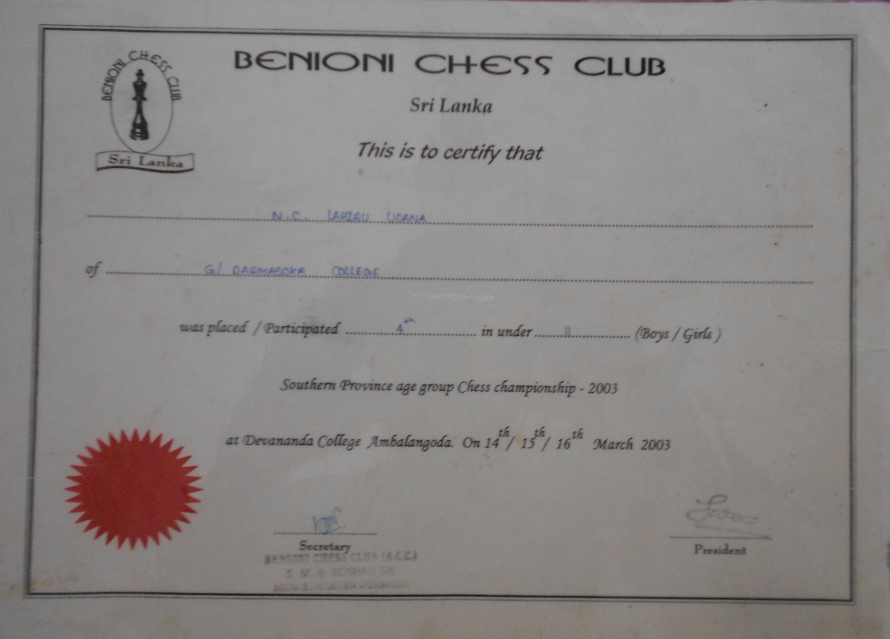 BENIONI CHESS CLUB
BENIONI CHESS CLUB
Sri Lanka
Sri Lanka
This is to certify that
N.C. LAHIRU UDANA
of G/ DARMASOKA COLLEGE
was placed / Participated 4th in under 11 (Boys / Girls )
Southern Province age group Chess championship - 2003
at Devananda College Ambalangoda. On 14th/ 15th/ 16th March 2003
Secretary
President
BENIONI CHESS CLUB (B.C.C.)